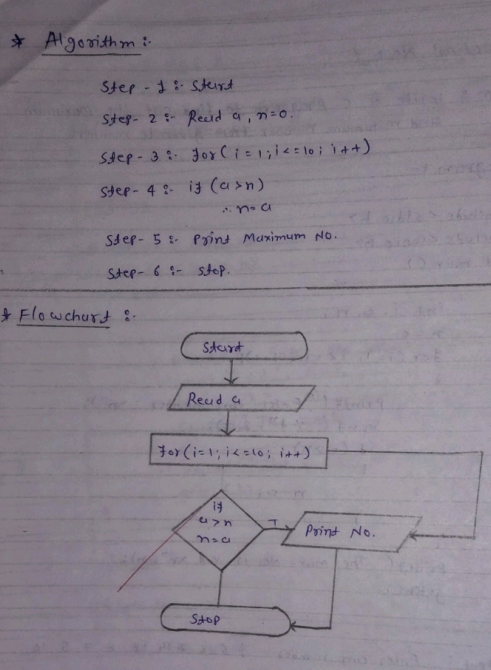 * Algorithm :-
Step - 1 :- Start
Step - 2 :- Read a, n=0.
Step - 3 :- for( i = 1; i <= 10; i++)
Step - 4 :- if (a>n)
∴ n=a
Step - 5 :- Print Maximum No.
Step - 6 :- Stop.
* Flowchart :-
Start
Read a
for(i=1; i<=10; i++)
if
a>n
n=a
T
Print No.
Stop